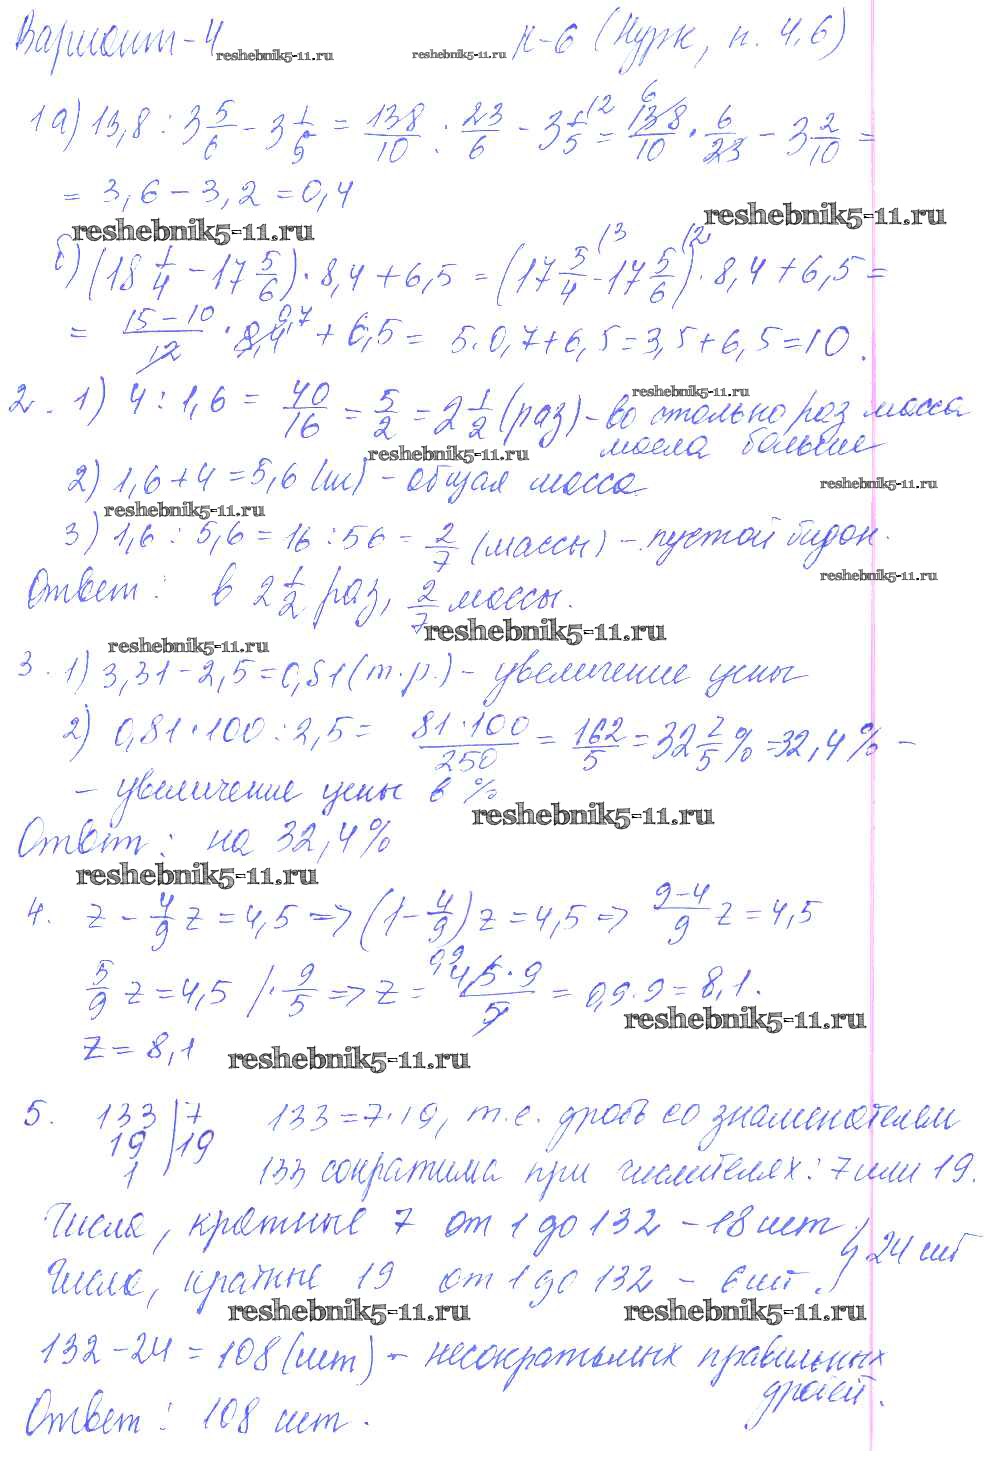 Вариант-4 reshebnik5-11.ru reshebnik5-11.ru К-6 (Нурк, п. 4,6)
1 а) 13,8 : 3 5/6 - 3 1/5 = 138/10 : 23/6 - 3 1/5 (2 = 138/10 · 6/23 - 3 2/10 =
= 3,6 - 3,2 = 0,4
reshebnik5-11.ru
reshebnik5-11.ru
б) (18 1/4 - 17 5/6) · 8,4 + 6,5 = (17 5/4 (3 - 17 5/6 (2) · 8,4 + 6,5 =
= 15-10/12 · 8,4 0,7 + 6,5 = 5 · 0,7 + 6,5 = 3,5 + 6,5 = 10.
reshebnik5-11.ru
2. 1) 4 : 1,6 = 40/16 = 5/2 = 2 1/2 (раз) - во столько раз масса
масла больше
reshebnik5-11.ru
2) 1,6 + 4 = 5,6 (кг) - общая масса
reshebnik5-11.ru
reshebnik5-11.ru
3) 1,6 : 5,6 = 16 : 56 = 2/7 (массы) - пустой бидон.
reshebnik5-11.ru
Ответ: в 2 1/2 раз, 2/7 массы.
reshebnik5-11.ru
reshebnik5-11.ru
3. 1) 3,31 - 2,5 = 0,81 (т.р.) - увеличение цены
2) 0,81 · 100 : 2,5 = 81 · 100/250 = 162/5 = 32 2/5 % = 32,4 % -
- увеличение цены в %
reshebnik5-11.ru
Ответ: на 32,4%
reshebnik5-11.ru
4. z - 4/9 z = 4,5 => (1 - 4/9) z = 4,5 => 9-4/9 z = 4,5
5/9 z = 4,5 | · 9/5 => z = 0,9 4,5 · 9/5 = 0,9 · 9 = 8,1.
reshebnik5-11.ru
z = 8,1
reshebnik5-11.ru
5. 133 | 7 133 = 7 · 19, т.е. дробь со знаменателем
19 | 19
1 133 сократима при числителях: 7 или 19.
Числа, кратные 7 от 1 до 132 - 18 шт.
} 24 шт
Числа, кратные 19 от 1 до 132 - 6 шт.
reshebnik5-11.ru reshebnik5-11.ru
132 - 24 = 108 (шт) - несократимых правильных
дробей.
Ответ: 108 шт.